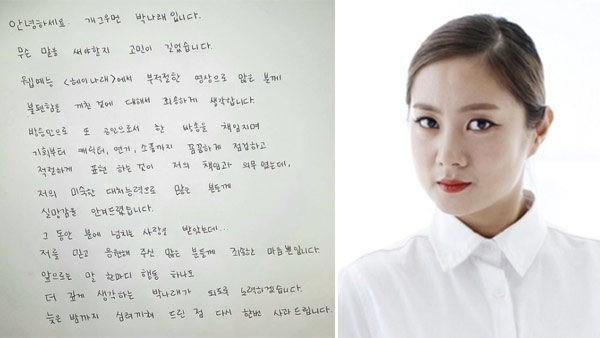 안녕하세요. 개그우먼 박나래 입니다.
무슨 말을 써야할지 고민이 길었습니다.
웹예능 <헤이나래>에서 부적절한 영상으로 많은 분께
불편함을 끼친 것에 대해서 죄송하게 생각합니다.
방송인으로 또 공인으로서 한 방송을 책임지며
기획부터 캐릭터, 연기, 소품까지 꼼꼼하게 점검하고
적절하게 표현 하는것이 저의 책임과 의무 였는데,
저의 미숙한 대처능력으로 많은 분들께
실망감을 안겨드렸습니다.
그 동안 분에 넘치는 사랑을 받았는데…
저를 믿고 응원해 주신 많은 분들께 죄송한 마음뿐입니다.
앞으로는 말 한마디 행동 하나도
더 깊게 생각하는 박나래가 되도록 노력하겠습니다.
늦은 밤까지 심려끼쳐 드린 점 다시 한번 사과 드립니다.